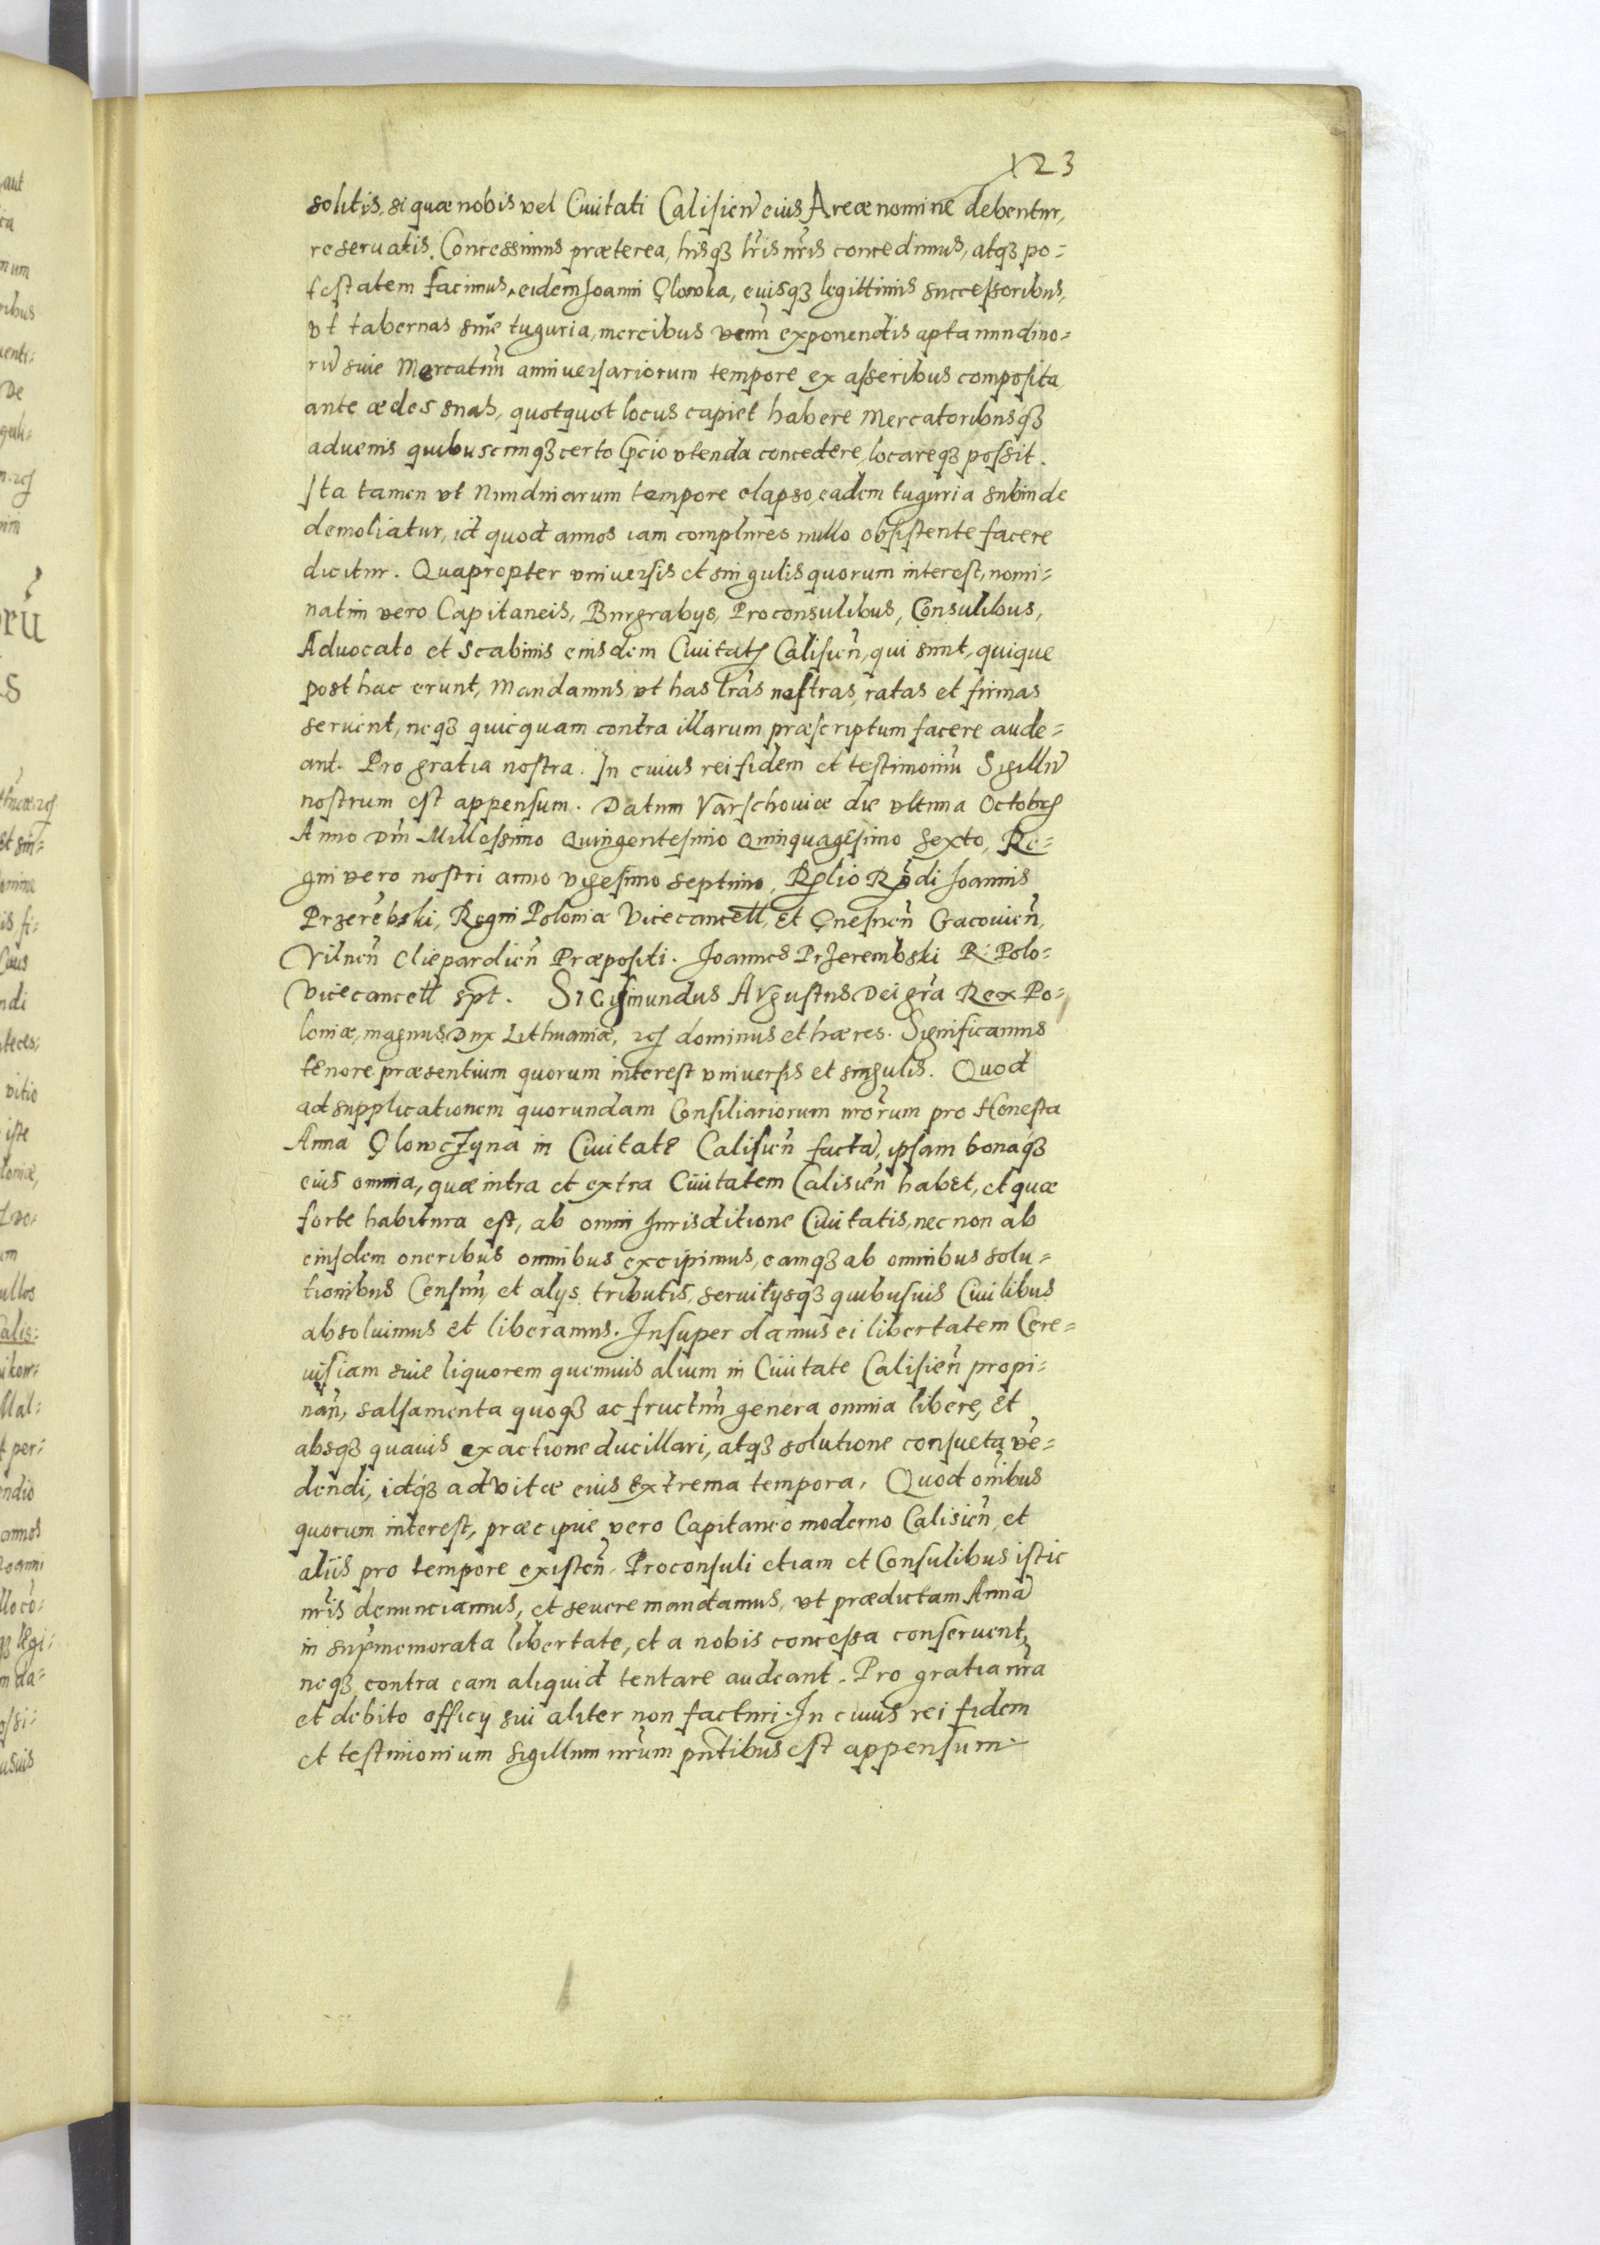 123
solitis, si quæ nobis vel Ciuitati Calisien̄ eius Areæ nomine debentur,
reseruatis. Concessimus præterea, hisq₃ lr̃is nr̃is concedimus, atq₃ po=
testatem facimus, eidem Joanni Glowka, euisq₃ legittimis successoribus,
vt tabernas siue tuguria, mercibus venū exponendis apta nundina=
rū siue Mercatuū anniuersariorum tempore ex asseribus composita
ante ædes suas, quotquot locus capiet habere Mercatoribusq₃
aduenis quibuscunq₃ certo p̃cio vtenda concedere, locareq₃ possit.
Ita tamen vt Nundinarum tempore elapso, eadem tuguria subinde
demoliatur, id quod annos iam complures nullo obsistente facere
dicitur. Quapropter vniuersis et singulis quorum interest, nomi=
natim vero Capitaneis, Burgrabijs, Proconsulibus, Consulibus,
Aduocato et Scabinis eiusdem Ciuitatꝭ Calisien̄, qui sunt, quique
post hac erunt, Mandamus, vt has lr̃as nostras, ratas et firmas
seruent, neq₃ quicquam contra illarum præscriptum facere aude=
ant. Pro gratia nostra. In cuius rei fidem et testimoniū Sigillū
nostrum est appensum. Datum Varschouiæ die vltima Octobrꝭ
Anno Dn̄i Millessimo Quingentesimo Quinquagesimo Sexto, Re=
gni vero nostri anno vigesimo septimo, Rꝑlio Rp̃di Joannis
Przerēbski, Regni Poloniæ Vicecancell, et Gnesnen̄ Cracouien̄,
Vilnen̄ Cliepardien̄ Præpositi. Joannes Przerembski R: Polo=
Vicecancell spt. Sigismundus Avgustus Dei gr̃a Rex Po=
loniæ, magnus Dux Lithuaniæ, ꝛcꝭ dominus et hæres. Significamus
tenore præsentium quorum interest vniuersis et singulis. Quod
ad supplicationem quorundam Consiliariorum nr̃orum pro Honesta
Anna Glowczyna in Ciuitate Calisien̄ factā, ipsam bonaq₃
eius omnia, quæ intra et extra Ciuitatem Calisien̄ habet, et quæ
forte habitura est, ab omni Jurisditione Ciuitatis, nec non ab
eiusdem oneribus omnibus excipimus, eamq₃ ab omnibus solu=
tionibus Censuū, et alijs tributis, seruitijsq₃ quibusuis Ciuilibus
absoluimus et liberamus. Insuper damus ei libertatem Cere=
uisiam siue liquorem quemuis alium in Ciuitate Calisien̄ propi=
nan̄, salsamenta quoq₃ ac fructuū genera omnia libere, et
absq₃ quauis exactione ducillari, atq₃ solutione consueta vē=
dendi, idq₃ ad vitæ eius extrema tempora. Quod om̄ibus
quorum interest, præcipue vero Capitaneo moderno Calisien̄, et
aliis pro tempore existen̄. Proconsuli etiam et Consulibus istic
nr̃is denunciamus, et seuere mandamus, vt prædictam Annā
in sup̃memorata libertate, et a nobis concessa conseruent,
neq₃ contra eam aliquid tentare audeant. Pro gratia nr̃a
et debito officij sui aliter non facturi. In cuius rei fidem
et testimonium sigillum nr̃um pn̄tibus est appensum.